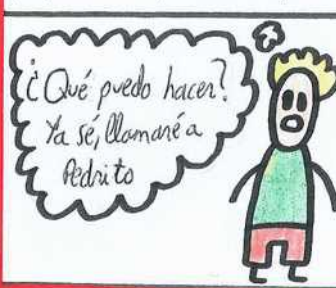 ¿Qué puedo hacer?
Ya sé, llamaré a
Pedrito